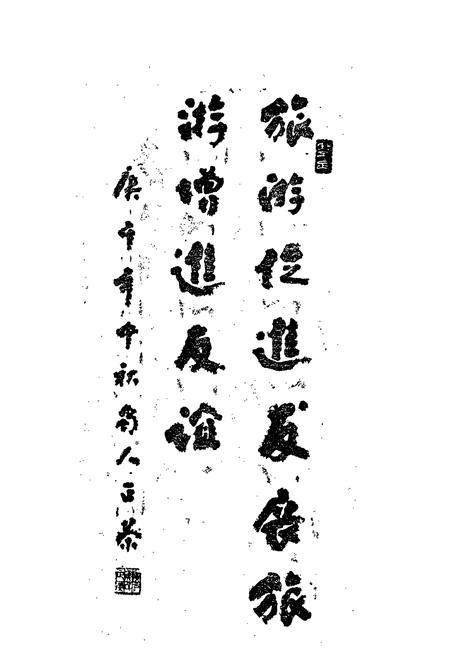 旅游促進发展旅
游增進友誼
庚午年中秋蜀人